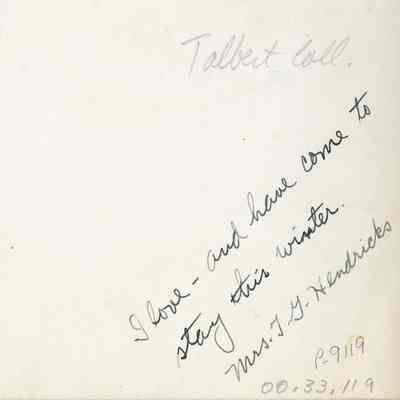 Talbert Coll.
I love - and have come to
stay this winter.
Mrs. T G. Hendricks
P-9119
00.33.119